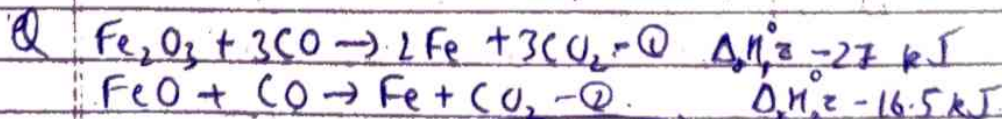 Q Fe₂O₃ + 3CO → 2Fe + 3CO₂ - ① ΔᵣH₁° = -27 kJ
FeO + CO → Fe + CO₂ - ②. ΔᵣH₂° = -16.5 kJ